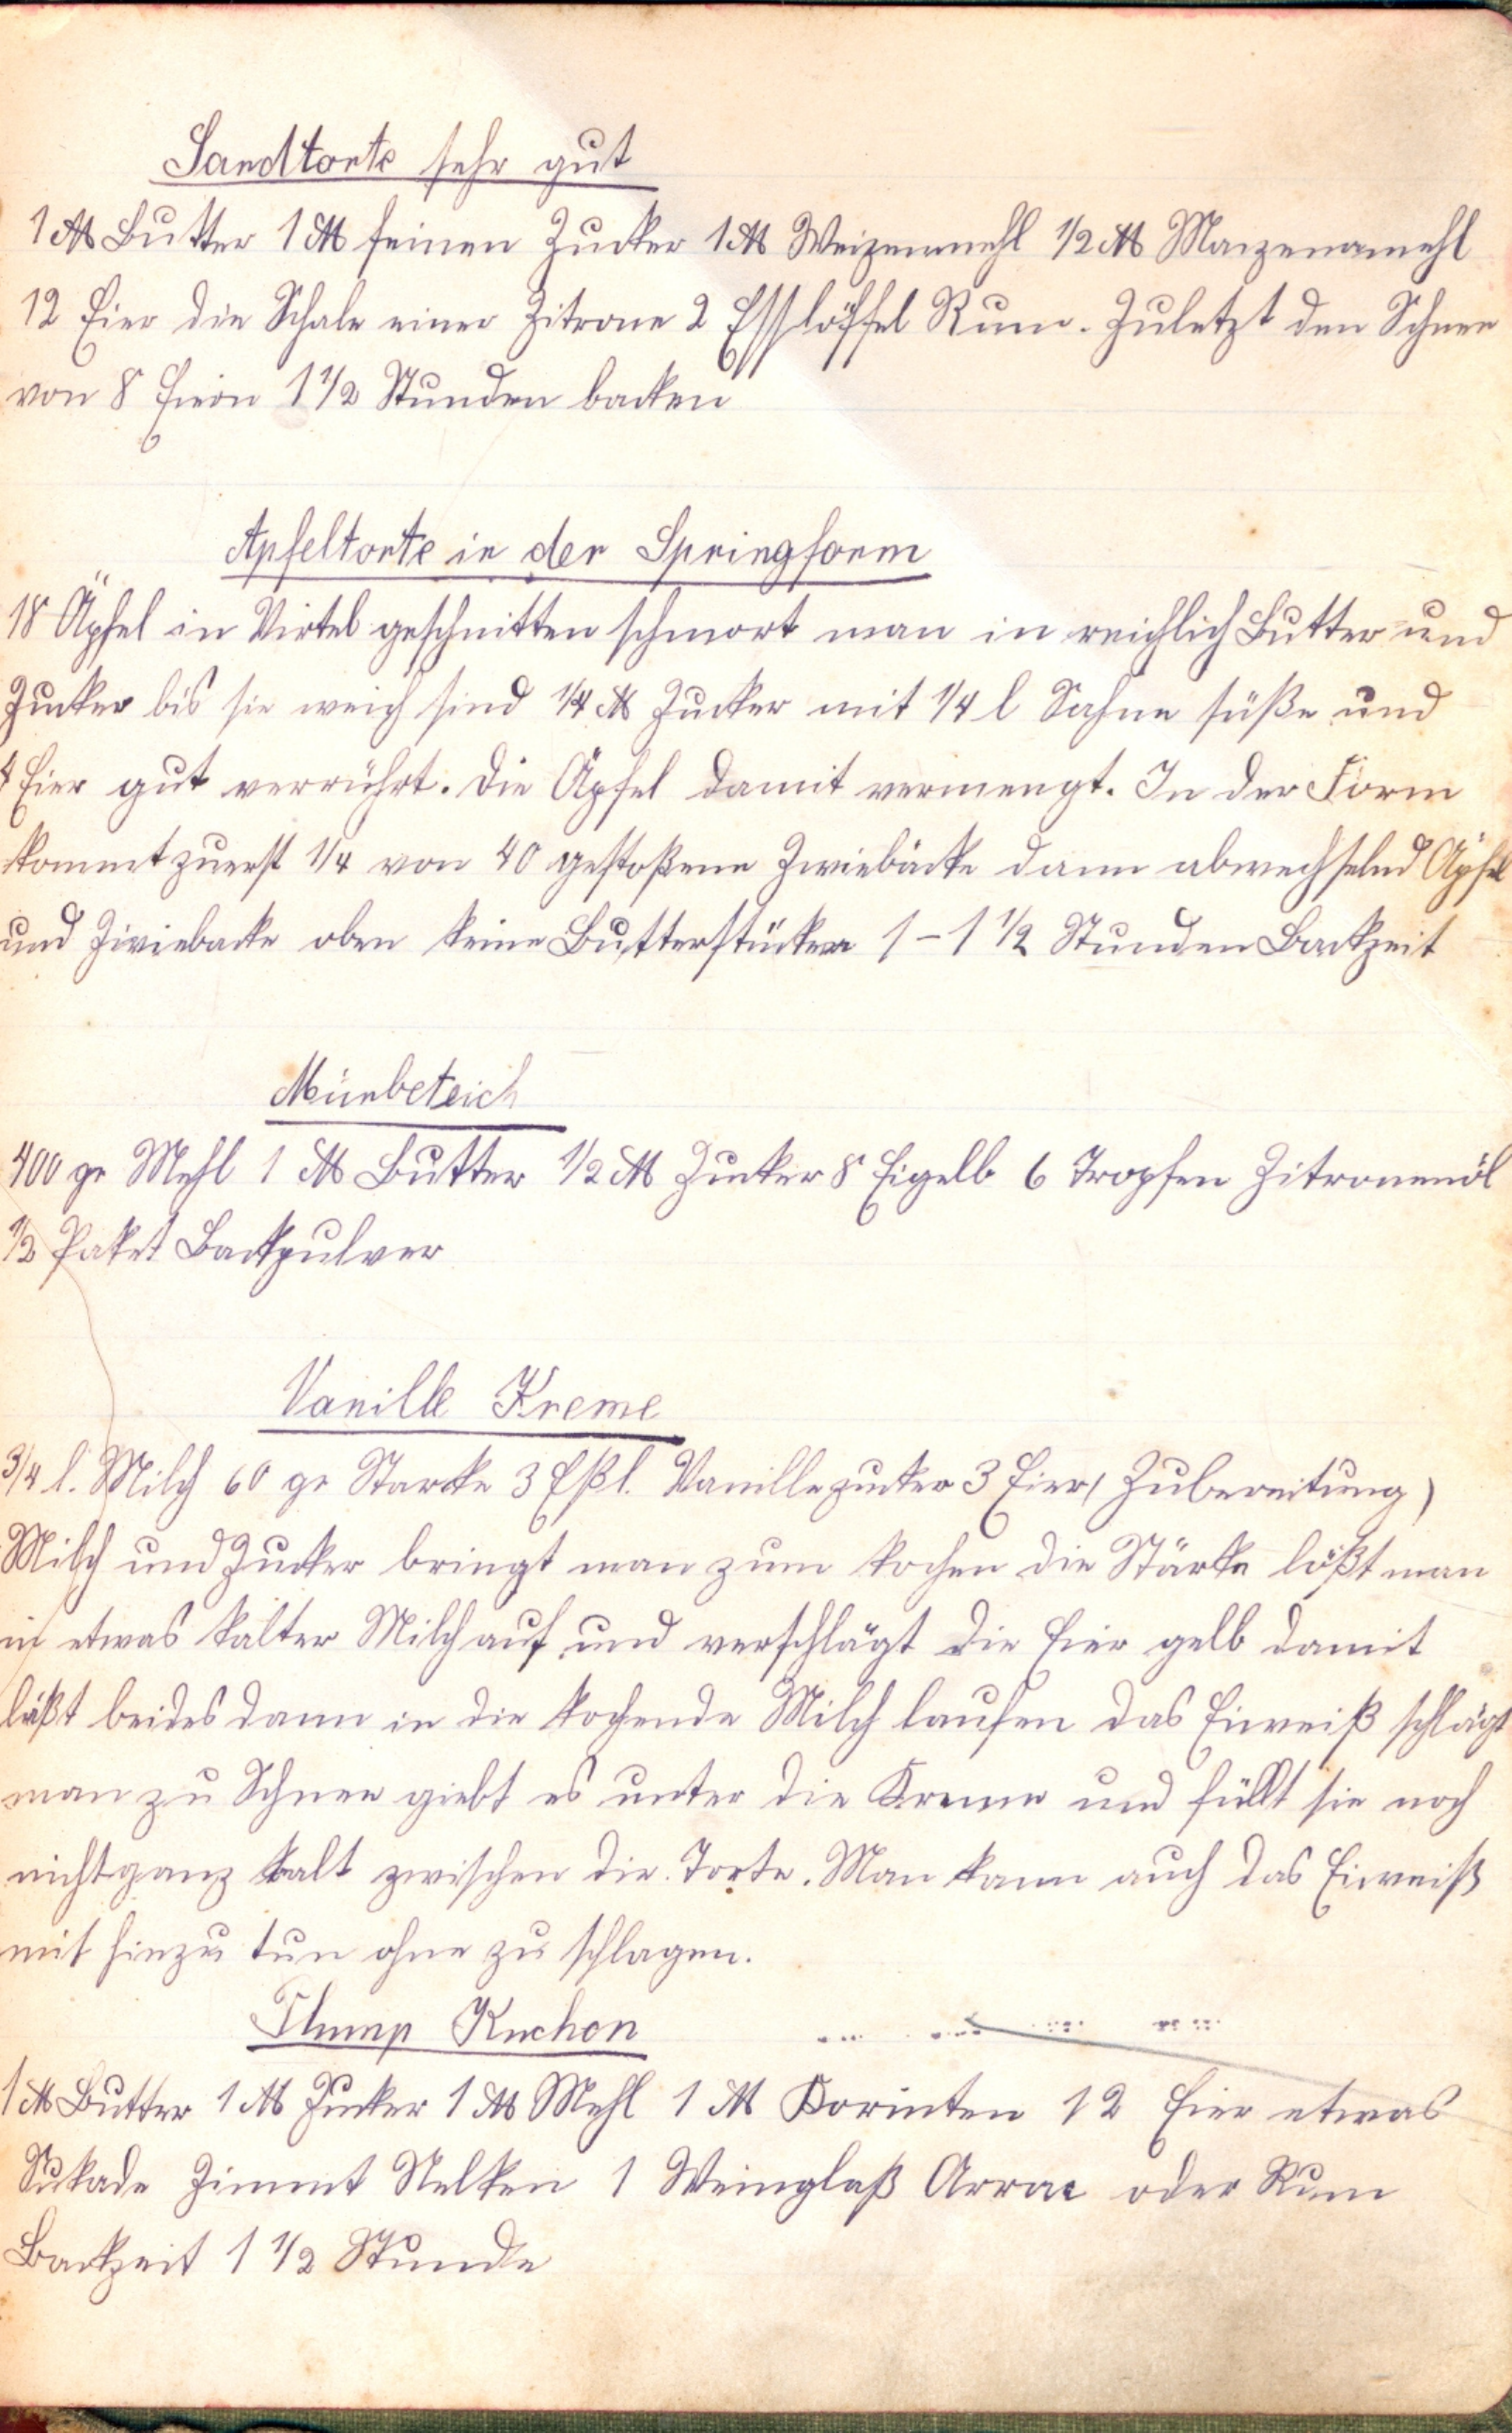 Sandtorte sehr gut
1 ℔ Butter 1 ℔ feinen Zucker 1 ℔ Weizenmehl 1/2 ℔ Maizenamehl
12 Eier die Schale einer Zitrone 2 Esslöffel Rum. Zuletzt den Schnee
von 8 Eiern 1 1/2 Stunden backen
Apfeltorte in der Springform
18 Äpfel in Virtel geschnitten schmort man in reichlich Butter und
Zucker bis sie weich sind 1/4 ℔ Zucker mit 1/4 l Sahne süße und
4 Eier gut verrührt. Die Äpfel damit vermengt. In der Form
kommt zuerst 1/4 von 40 gestoßene Zwiebäcke dann abwechselnd Äpfel
und Zwiebacke oben keine Butterstücken 1 – 1 1/2 Stunden Backzeit
Mürbeteich
400 gr Mehl 1 ℔ Butter 1/2 ℔ Zucker 8 Eigelb 6 Tropfen Zitronenöl
1/2 Paket Backpulver
Vanille Kreme
3/4 l. Milch 60 gr Starke 3 Eßl. Vanillezucker 3 Eier (Zubereitung)
Milch und Zucker bringt man zum kochen die Stärke lößt man
in etwas kalter Milch auf und verschlägt die Eier gelb damit
läßt beides dann in die kochende Milch laufen das Eiweiß schlägt
man zu Schnee giebt es unter die Kreme und füllt sie noch
nicht ganz kalt zwischen die Torte. Man kann auch das Eiweiß
mit hinzu tun ohne zu schlagen.
Plump Kuchen
1 ℔ Butter 1 ℔ Zucker 1 ℔ Mehl 1 ℔ Korinten 12 Eier etwas
Sukade Zimmt Nelken 1 Weinglaß Arrac oder Rum
Backzeit 1 1/2 Stunde